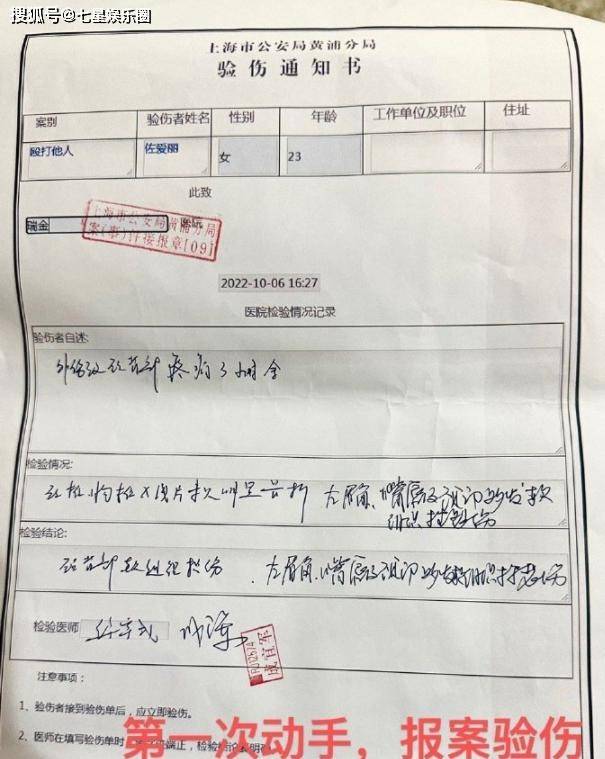 搜狐号@七星娱乐圈
上海市公安局黄浦分局
验伤通知书
案别 验伤者姓名 性别 年龄 工作单位及职位 住址
殴打他人 佐爱丽 女 23
此致
瑞金 医院
上海市公安局黄浦分局
案(事)件接报章[09]
2022-10-06 16:27
医院检验情况记录
验伤者自述:
外伤致 疼痛3小时余
检验情况:
X片未见明显骨折 左眉角、嘴唇及 软
组织挫伤
检验结论:
软组织挫伤、左眉角、嘴唇及 软组织挫伤
检验医师
成宜军
注意事项:
1、验伤者接到验伤单后，应立即验伤。
2、医师在填写验伤单时
第一次动手，报案验伤